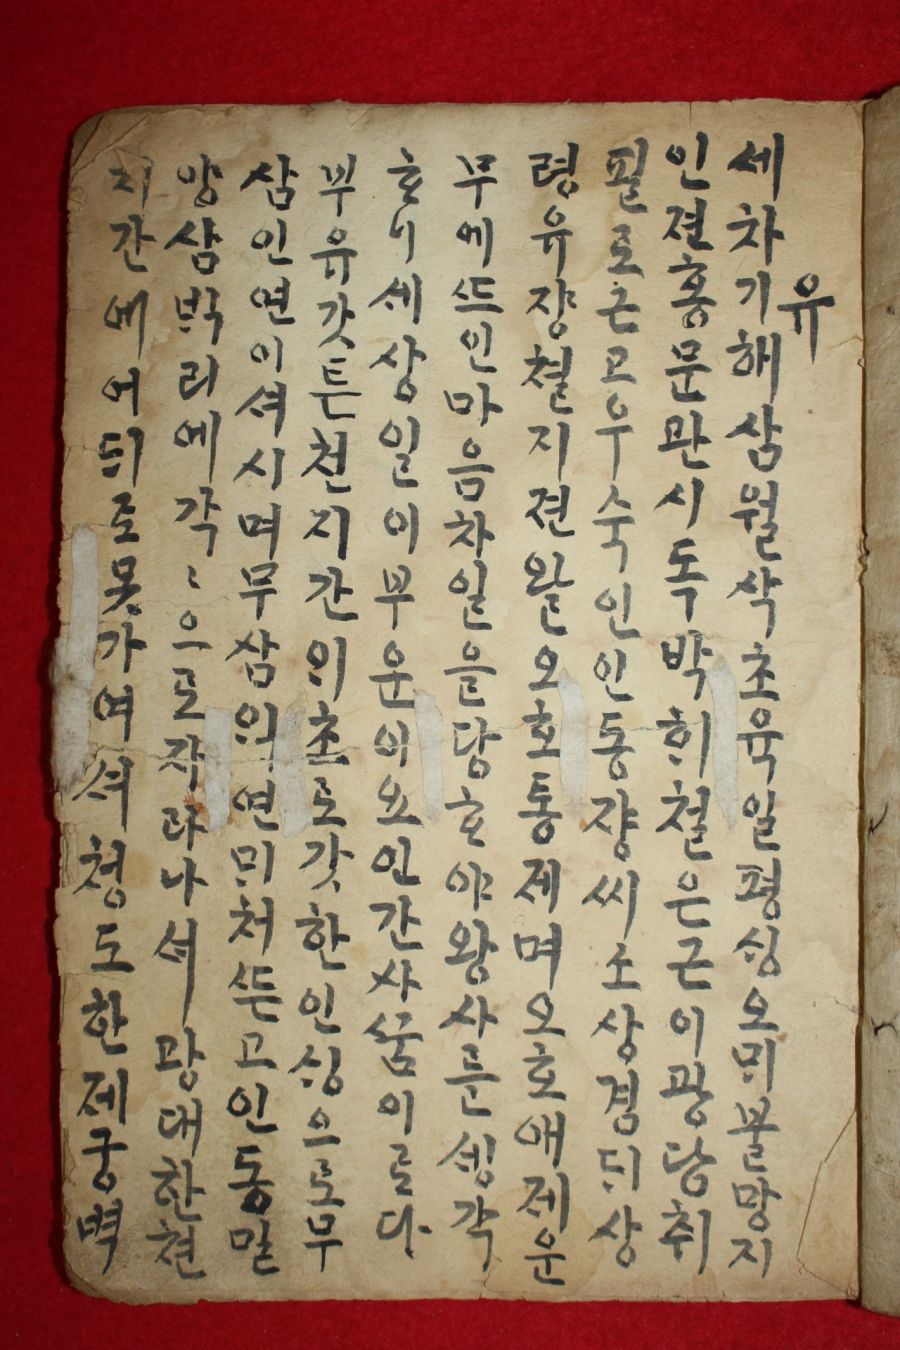 유
셰차기해삼월삭초육일평싱오ᄆᆡ불망지
인젼홍문관시독박히철은근이광당취
필로근고우숙인인동쟝씨소상경ᄃᆡ상
령유쟝쳘지젼왈오호통졔며오호애졔운
무에뜨인마음차일을당ᄒᆞ야왕사를셍각
ᄒᆞ니셰상일이부운이요인간사ᄭᅮᆷ이로다
부유갓튼쳔지간의초로갓한인싱으로무
삼인연이셔시며무삼의연ᄆᆡ쳐뜬고인동밀
양삼ᄇᆡᆨ리에각〻으로자라나셔광대한쳔
지간에어ᄃᆡ로못가여셔쳥도한졔궁벽